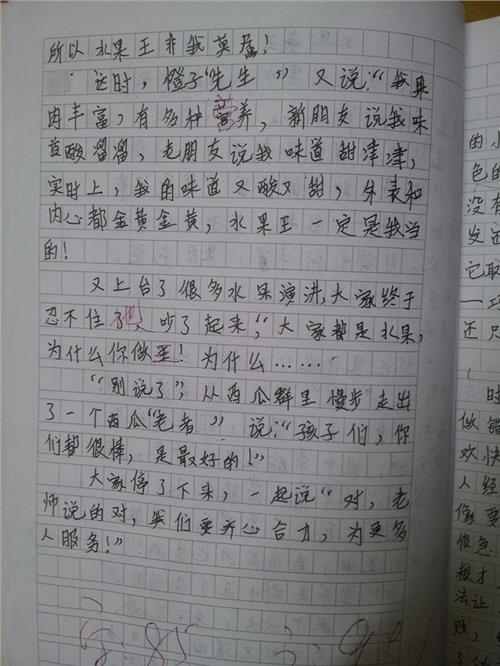 所以水果王非我莫属！
这时，橙子“先生”又说：“我果
肉丰富，有多种营养，新朋友说我味
道酸溜溜，老朋友说我味道甜津津，
实时上，我的味道又酸又甜，外表和
内心都金黄金黄，水果王一定是我当
的！
又上台了很多水果演讲，大家终于
忍不住了，吵了起来，“大家都是水果，
为什么你做王！为什么……
“别说了”，从西瓜群里慢步走出
了一个西瓜“老者”说：“孩子们，你
们都很棒，是最好的！”
大家停了下来，一起说“对，老
师说的对，我们要齐心合力，为更多
人服务！”
的小
色的
没有
发还
它取
还只
时
做错
欢快
人经
像要
很色
接才
法让
败，